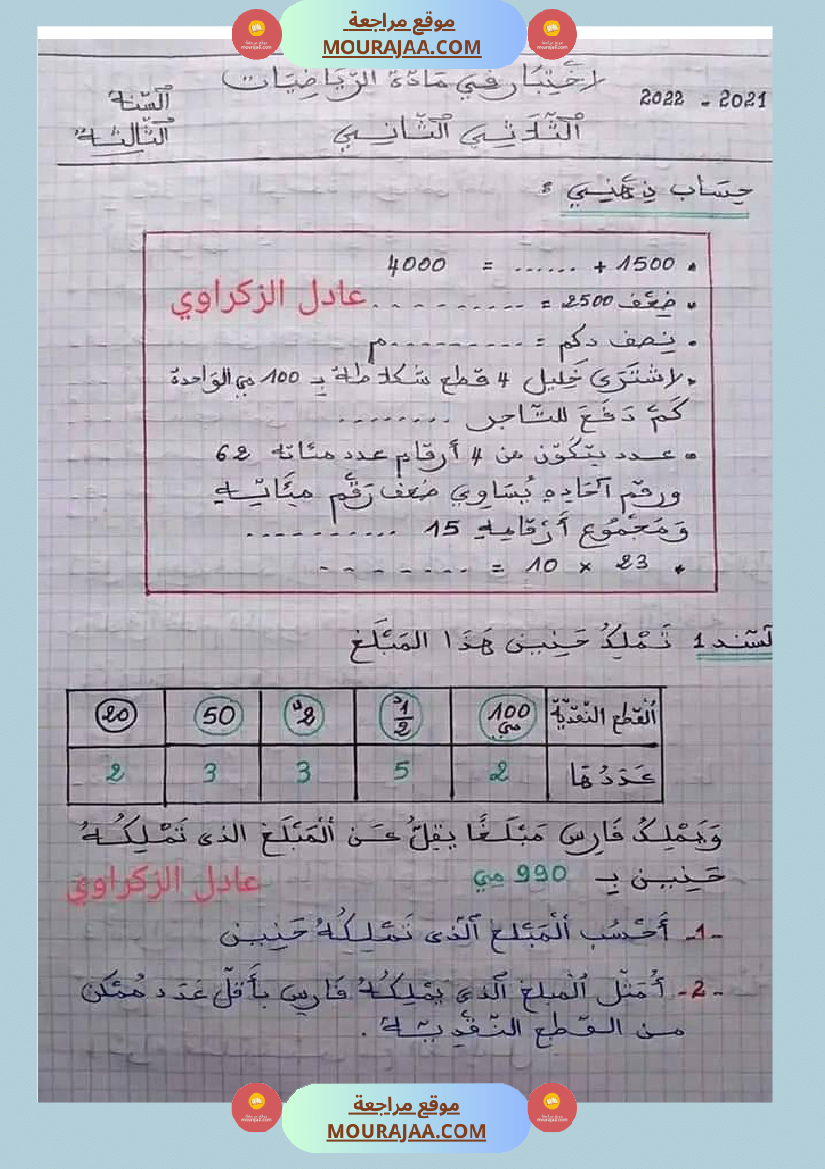 موقع مراجعة
MOURAJAA.COM
اختبار في مادة الرياضيات
2022 - 2021
السنة
الثلاثي الثاني
الثالثة
حساب ذهني :
• 1500 + ...... = 4000
• ضعف 2500 = ...........
عادل الزكراوي
• نصف دكم = ...........م
• اشترى خليل 4 قطع شكلاطة بـ 100 مي الواحدة
كم دفع للتاجر ........
• عدد يتكون من 4 أرقام عدد مئاته 62
ورقم آحاده يساوي ضعف رقم مئاته
ومجموع أرقامه 15 ..........
• 23 × 10 = .......
السند 1 تملك حنين هذا المبلغ
القطع النقدية 100 مي 1/2 د 2 د 50 20
عددها 2 5 3 3 2
ويملك فارس مبلغا يقل عن المبلغ الذي تملكه
حنين بـ 990 مي
عادل الزكراوي
-1- أحسب المبلغ الذي تملكه حنين
-2- أمثل المبلغ الذي يملكه فارس بأقل عدد ممكن
من القطع النقدية .
موقع مراجعة
MOURAJAA.COM